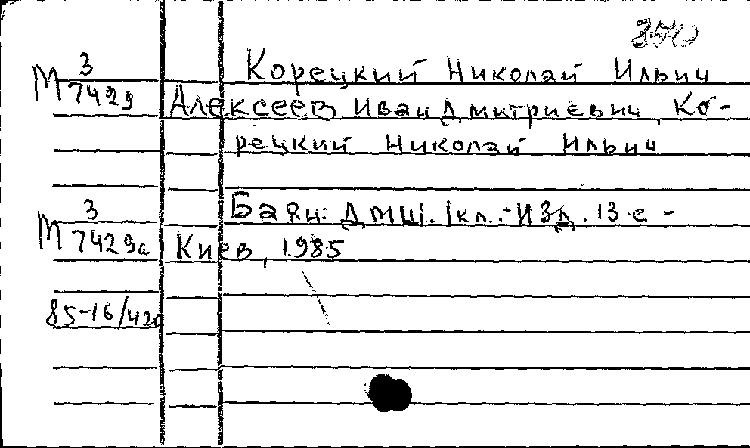 Корецкий Николай Ильич
М 3/7429
Алексеев Иван Дмитриевич, Ко-
рецкий Николай Ильич
Баян: ДМШ. 1кл.-Изд. 13-е -
М 3/7429а
Киев, 1985
85-16/420